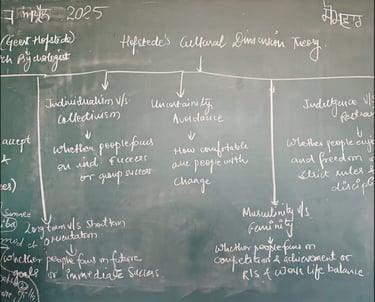 ਅਪ੍ਰੈਲ 2025
ਸੋਮਵਾਰ
(Geert Hofstede)
Hofstede's Cultural Dimension Theory.
ch Psychologist
Individualism v/s
Collectivism
Uncertainity
Avoidance
Indulgence v/s
Whether people focus
on ind. success
or group success
How comfortable
are people with
change
Whether people enjoy
and freedom or
strict rules &
discipl
accept
&
Long term v/s Short term
Orientation
Whether people focus on future
goals or immediate success.
Musculinity v/s
Feminity
Whether people focus on
competition & achievement or
R/S & Work life balance